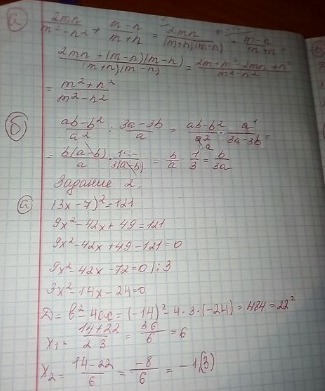 а) 2mn/(m²-n²) + (m-n)/(m+n) = 2mn/((m+n)(m-n)) + (m-n)/(m+n) =
(2mn+(m-n)(m-n))/((m+n)(m-n)) = (2mn+m²-2mn+n²)/(m²-n²)
= (m²+n²)/(m²-n²)
б) (ab-b²)/a² : (3a-3b)/a = (ab-b²)/a² · a¹/(3a-3b) =
= b(a-b)/a · 1/(3(a-b)) = b/a · 1/3 = b/3a
Задание 2
а) (3x-7)²=121
9x²-42x+49=121
9x²-42x+49-121=0
9x²-42x-72=0|:3
3x²-14x-24=0
D=b²-4ac=(-14)²-4·3·(-24)=484=22²
x₁= (14+22)/(2·3) = 36/6 = 6
x₂= (14-22)/6 = -8/6 =